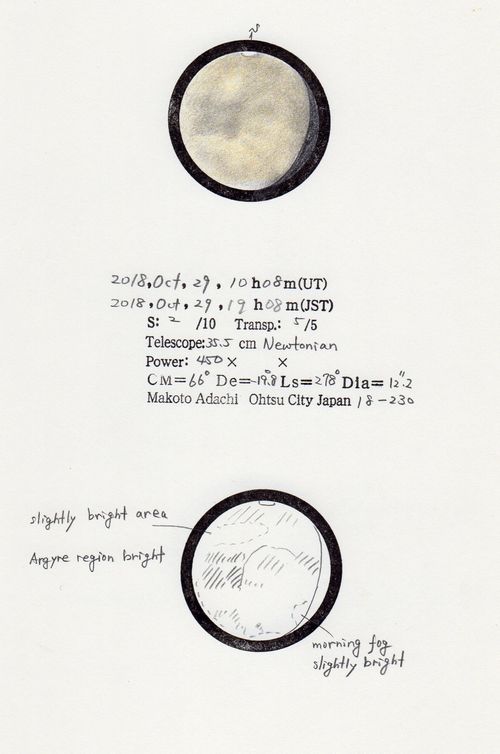 2018, Oct, 29, 10 h 08 m (UT)
2018, Oct, 29, 19 h 08 m (JST)
S: 2 /10 Transp.: 5/5
Telescope: 35.5 cm Newtonian
Power: 450 × ×
CM=66° De=-19.8° Ls=278° Dia=12".2
Makoto Adachi Ohtsu City Japan 18-230
slightly bright area
Argyre region bright
morning fog
slightly bright